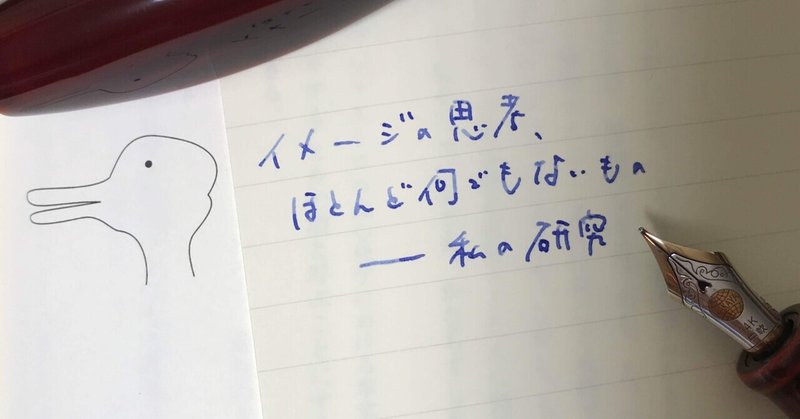 イメージの思考、
ほとんど何でもないもの
── 私の研究